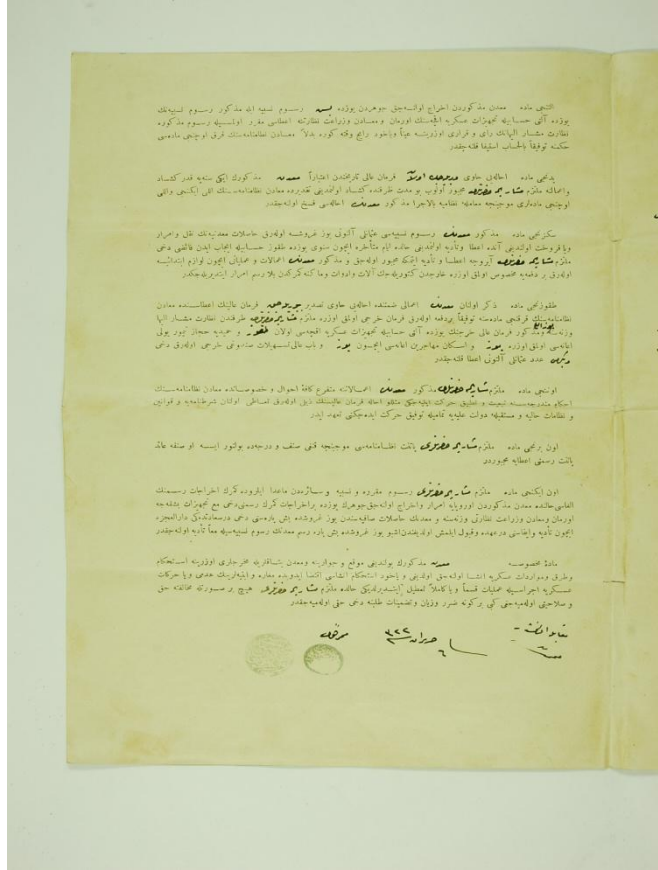 التنجی ماده معدن مذکوردن اخراج اولنه‌جق جوهردن یوزده بش رسوم نسبیه ایله مذکور رسوم نسبیه‌نك
یوزده آلتی حسابیله تجهیزات عسکریه اقچه‌سنك اورمان ومعادن وزراعت نظارتنه اعطاسی مقرر اولنمسیله رسوم مذکوره
نظارت مشار الیهانك رأی و قراری اوزرینه عیناً ویاخود رایج وقته کوره بدلاً معادن نظامنامه‌سنك قرق اوچنجی ماده‌سی
حکمنه توفیقاً بالحساب استیفا قلنه‌جقدر
یدنجی ماده احاله‌یی حاوی فرمان عالی تاریخندن اعتباراً معدن مذکورك ایکی سنه‌یه قدر کشاد
واعمالنه ملتزم مجبور اولوب بو مدت ظرفنده کشاد اولنمدیغی تقدیرده معادن نظامنامه‌سنك اللی ایکنجی واللی
اوچنجی ماده‌لری موجبنجه معامله نظامیه بالاجرا مذکور معدنك احاله‌سی فسخ اولنه‌جقدر
سکزنجی ماده مذکور معدنك رسوم نسبیه‌سی عثمانلی آلتونی یوز غروشه اوله‌رق حاصلات معدنیه‌نك نقل وامرار
ویا فروخت اولندیغی آنده اعطا وتأدیه اولنمدیغی حالده ایام متأخره ایچون سنوی یوزده طقوز حسابیله ایجاب ایدن فائضی دخی
ملتزم آیروجه اعطا و تأدیه ایتمکه مجبور اوله‌جق و مذکور معدنك اعمالات و عملیاتی ایچون لوازم ابتدائیه
اوله‌رق بر دفعه‌یه مخصوص اولمق اوزره خارجدن کتوریله‌جك آلات وادوات وماکنه کمرکدن بلا رسم امرار ایتدیریله‌جکدر
طقوزنجی ماده ذکر اولنان معدنك اعمالی ضمننده احاله‌یی حاوی تصدیر بیوریله‌جق فرمان عالینك اعطاسنده معادن
نظامنامه‌سنك قرقنجی ماده‌سنه توفیقاً بردفعه اوله‌رق فرمان خرجی اولمق اوزره ملتزم طرفندن نظارت مشار الیها
وزنه‌سنه و مذکور فرمان عالی خرجنك یوزده آلتی حسابیله تجهیزات عسکریه اقچه‌سی اولان و حمیدیه حجاز تیمور یولی
اعانه‌سی اولمق اوزره و اسکان مهاجرین اعانه‌سی ایچون و باب عالی تسهیلات صندوغی خرجی اوله‌رق دخی
عدد عثمانلی آلتونی اعطا قلنه‌جقدر
اوننجی ماده ملتزم مذکور معدنك اعمالاتنه متفرع کافهٔ احوال و خصوصاتده معادن نظامنامه‌سنك
احکام مندرجه‌سنه تبعیت و تطبیق حرکت ایلیه‌جکی مثللو احاله فرمان عالیسنك ذیلی اوله‌رق تعاطی اولنان شرطنامه‌یه و قوانین
و نظامات حالیه و مستقبلهٔ دولت علیه‌یه تمامیله توفیق حرکت ایده‌جکنی تعهد ایدر
اون برنجی ماده ملتزم پاتنت نظامنامه‌سی موجبنجه قنغی صنف و درجه‌ده بولنور ایسه او صنفه عائد
پاتنت رسمنی اعطایه مجبوردر
اون ایکنجی ماده ملتزم رسوم مقرره و نسبیه و سائره‌دن ماعدا ایلروده کمرك اخراجات رسمنك
الغاسی حالنده معدن مذکوردن اوروپایه امرار واخراج اوله‌جق جوهرك یوزده بر اخراجات کمرك رسمنی دخی مع تجهیزات بشقه‌جه
اورمان ومعادن وزراعت نظارتی وزنه‌سنه و معدنك حاصلات صافیه‌سندن یوز غروشده بش پاره‌سنی دخی درسعادتده‌کی دارالعجزه
ایچون تأدیه وایفاسنی درعهده وقبول ایلمش اولدیغندن اشبو یوز غروشده بش پاره رسم معدنك رسوم نسبیه‌سیله معاً تأدیه اوله‌جقدر
مادهٔ مخصوصه معدن مذکورك بولندیغی موقع و جوارینه ومعدن یتاقلرینه مخرجلری اوزرینه استحکام
وطرق ومواردات عسکریه انشا اوله‌جق اولدیغی و یاخود استحکام انشاسی اقتضا ایدوبده مغاره و ابنیه‌لرینك هدمی ویا حرکات
عسکریه اجراسیله عملیات قسماً ویا کاملاً تعطیل ایتدیرلدیکی حالده ملتزم هیچ بر صورتله مخالفته حق
و صلاحیتی اوله‌میه‌جغی کبی برکونه ضرر وزیان وتضمینات طلبنه دخی حقی اوله‌میه‌جقدر
حزیران ٣٢٢